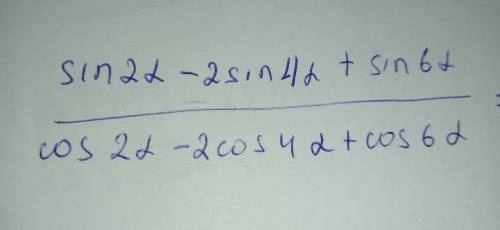 sin2α - 2sin4α + sin6α
cos 2α - 2cos 4α + cos 6α =